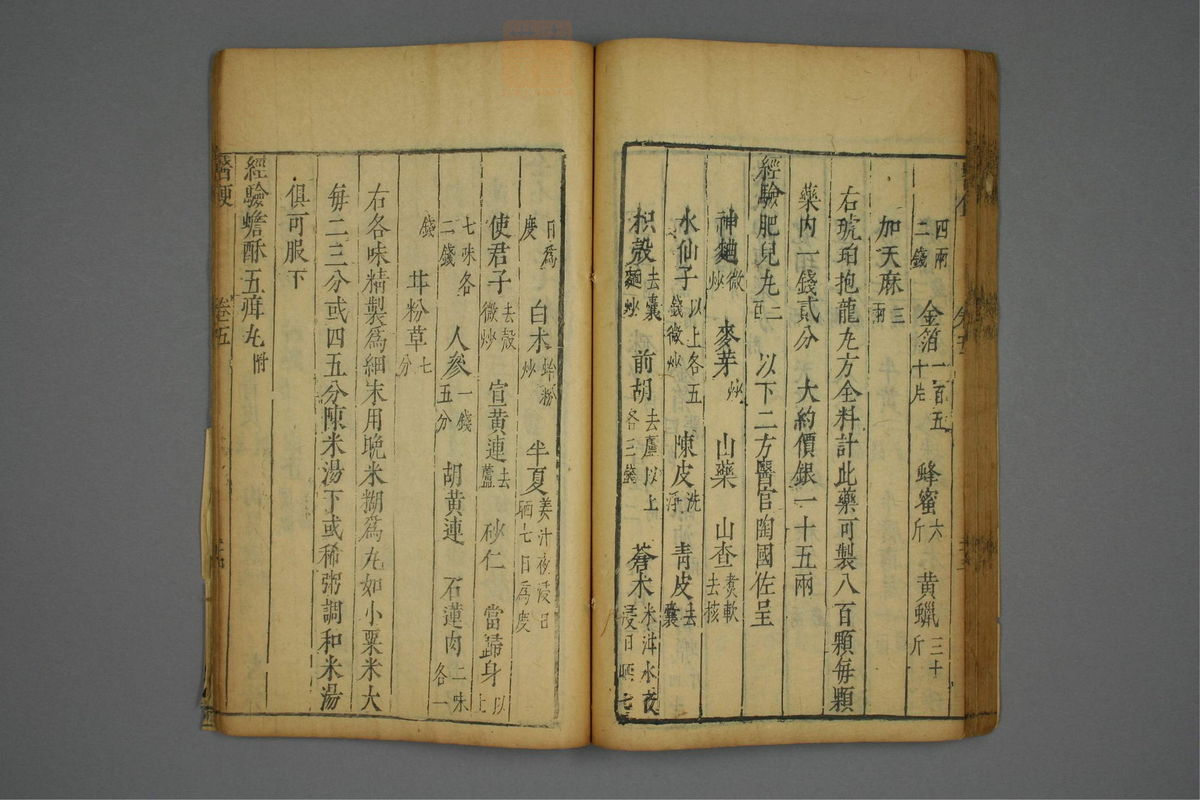 四兩二錢 金箔一百五十片 蜂蜜六斤 黄蠟三十斤
加天麻三兩
右琥珀抱龍丸方全料計此藥可製八百顆每顆
藥內一錢貳分 大約價銀一十五兩
經驗肥兒丸二 以下二方醫官陶國佐呈
神麯微炒 麥芽炒 山藥 山查煑軟去核
水仙子以上各五錢微炒 陳皮洗浄 青皮去囊
枳殼去囊麵炒 前胡去蘆以上各三錢 蒼木米泔水夜浸日晒七
日爲度 白木蛤粉炒 半夏姜汁夜浸日晒七日爲度
使君子去殼微炒 宣黄連去蘆 砂仁 當歸身以上
七味各二錢 人參一錢五分 胡黄連 石蓮肉二味各一
錢 甘粉草七分
右各味精製爲細末用晚米糊爲丸如小粟米大
每二三分或四五分陳米湯下或稀粥調和米湯
俱可服下
經驗蟾酥五疳丸附
卷五